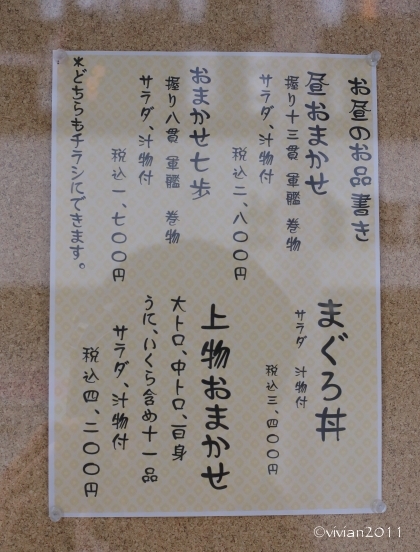 お昼のお品書き
昼おまかせ
握り十三貫 軍艦 巻物
サラダ、汁物付
税込二、八〇〇円
おまかせ七歩
握り八貫 軍艦 巻物
サラダ、汁物付
税込一、七〇〇円
*どちらもチラシにできます。
まぐろ丼
サラダ 汁物付
税込三、四〇〇円
上物おまかせ
大トロ、中トロ、白身
うに、いくら含め十一品
サラダ、汁物付
税込四、二〇〇円
©vivian2011